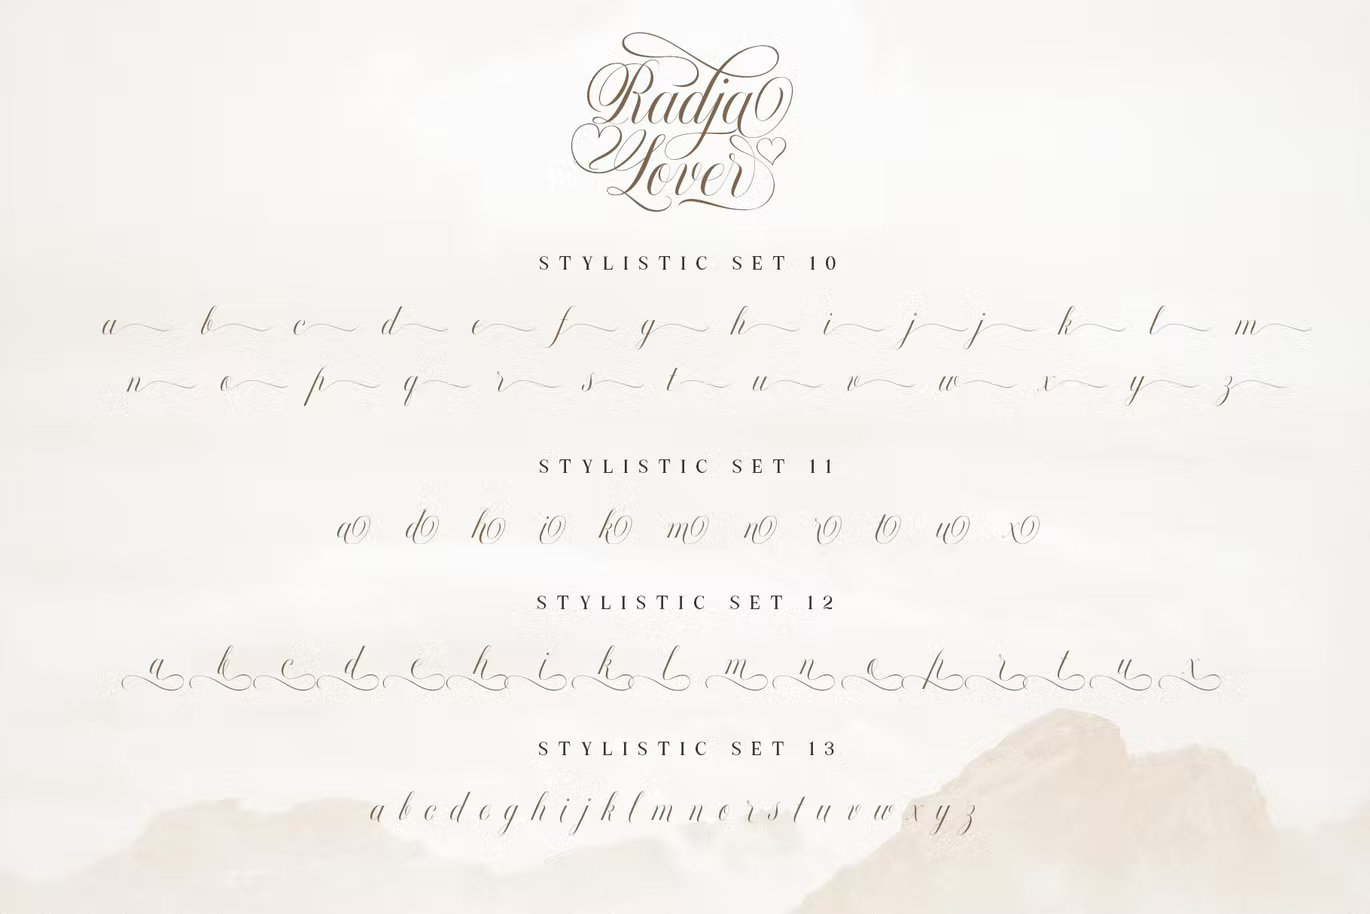 Radja
Lover
STYLISTIC SET 10
a b c d e f g h i j j k l m
n o p q r s t u v w x y z
STYLISTIC SET 11
a d h i k m n r t u x
STYLISTIC SET 12
a b c d e h i k l m n o p r t u x
STYLISTIC SET 13
a b c d e g h i j k l m n o r s t u v w x y z